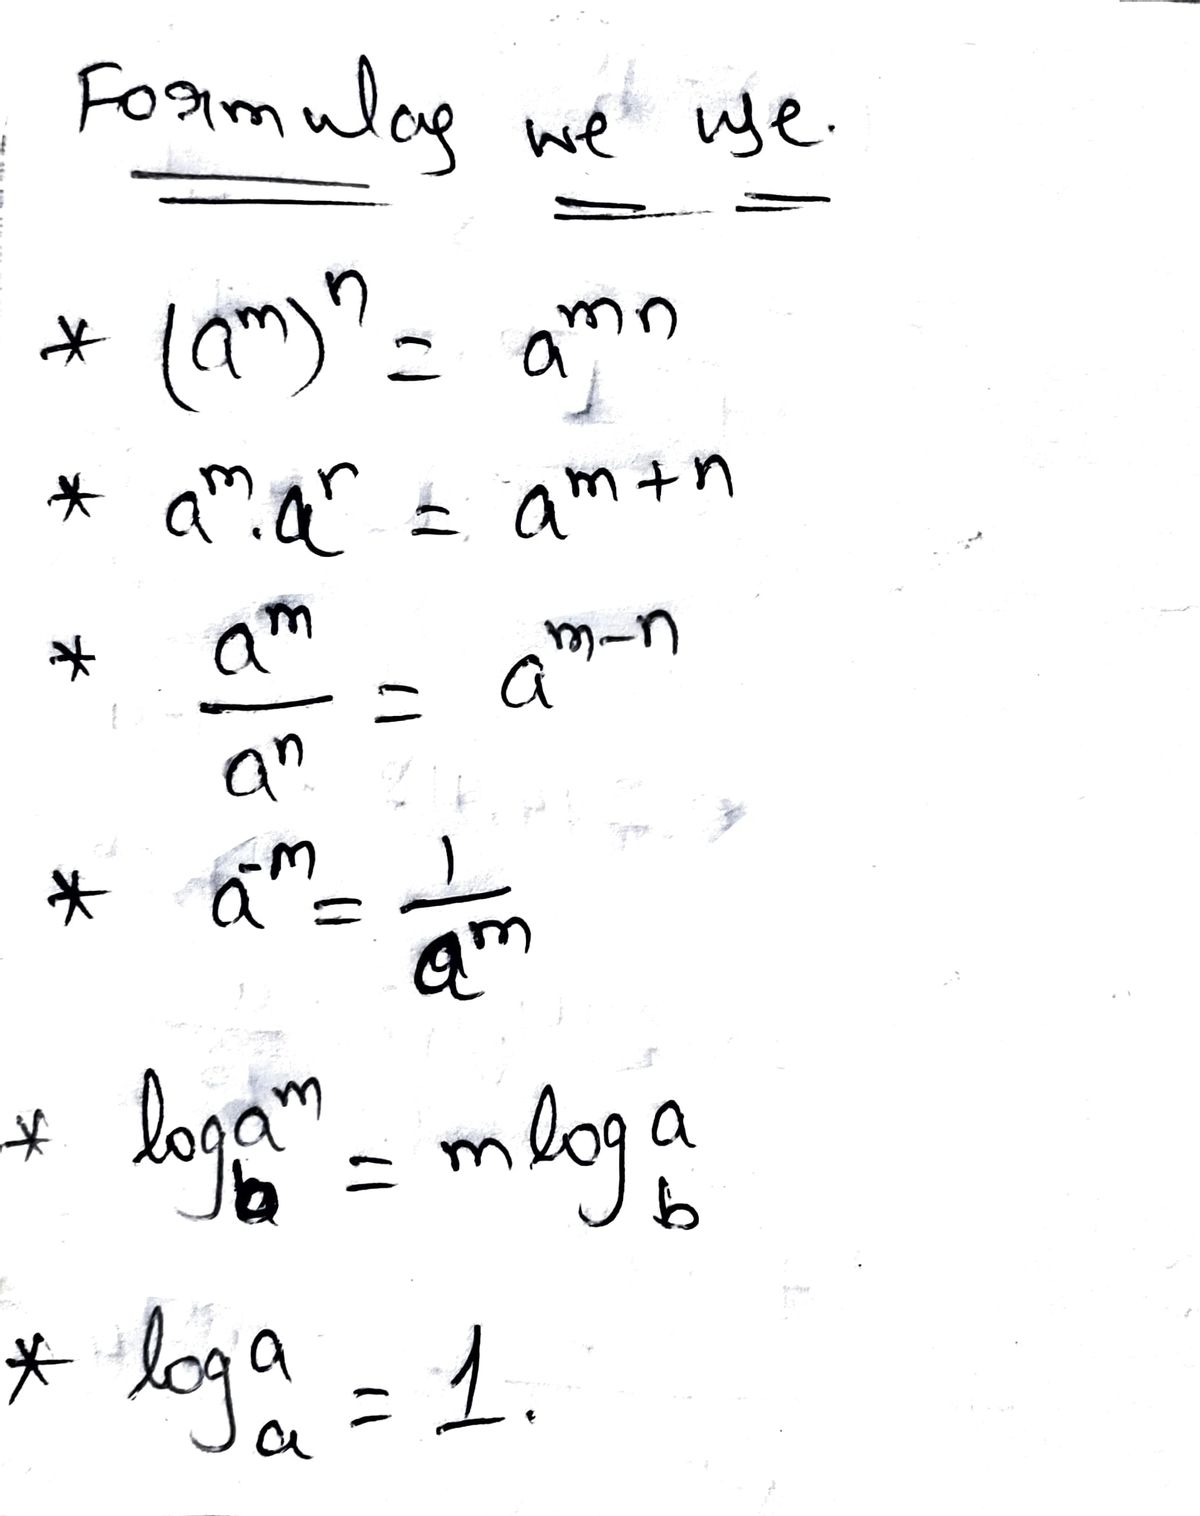 Formulas we use.
* (a^m)^n = a^{mn}
* a^m . a^r = a^{m+n}
* a^m / a^n = a^{m-n}
* a^{-m} = 1 / a^m
* log_b a^m = m log_b a
* log_a a = 1.